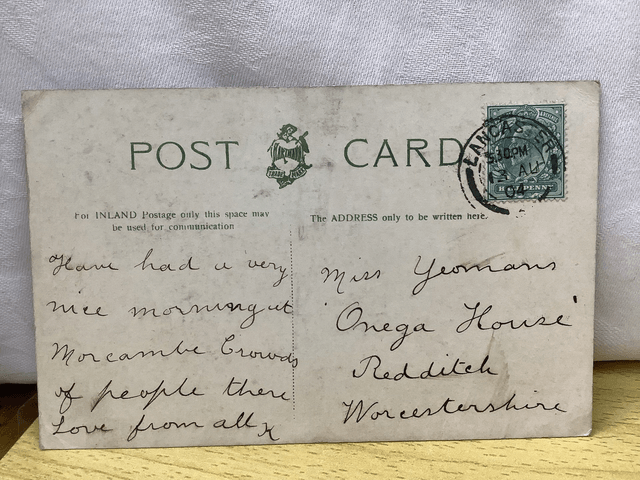 POST CARD
LANCASTER
5.30 PM
AU
HALFPENNY
TRADE MARK
For INLAND Postage only this space may
be used for communication
The ADDRESS only to be written here.
Have had a very
nice morning at
Morcambe Crowds
of people there
Love from all x
Miss Yeomans
"Onega House"
Redditch
Worcestershire